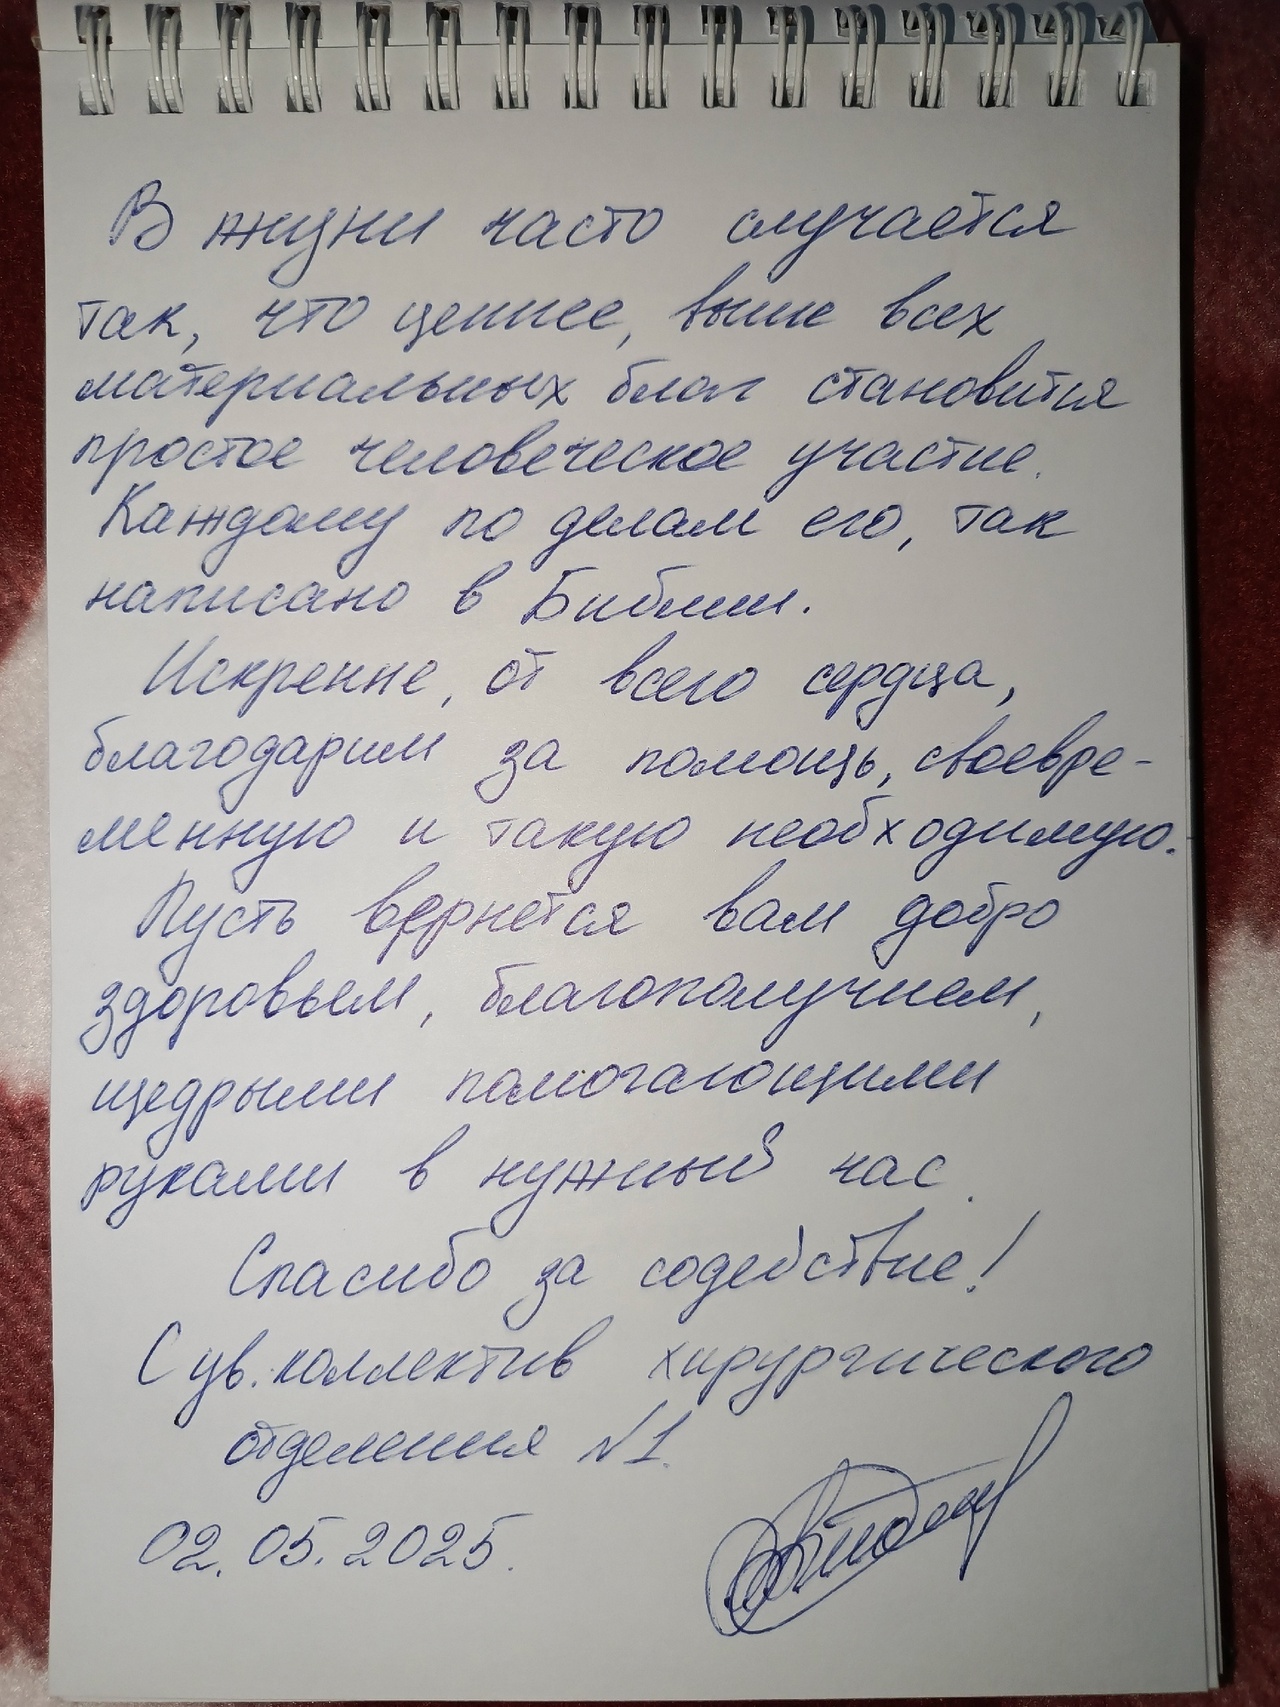 В жизни часто случается
так, что ценнее, выше всех
материальных благ становится
простое человеческое участие.
Каждому по делам его, так
написано в Библии.
Искренне, от всего сердца,
благодарим за помощь, своевре-
менную и такую необходимую.
Пусть вернется вам добро
здоровьем, благополучием,
щедрыми помогающими
руками в нужный час.
Спасибо за содействие!
С ув. коллектив хирургического
отделения №1.
02.05.2025.